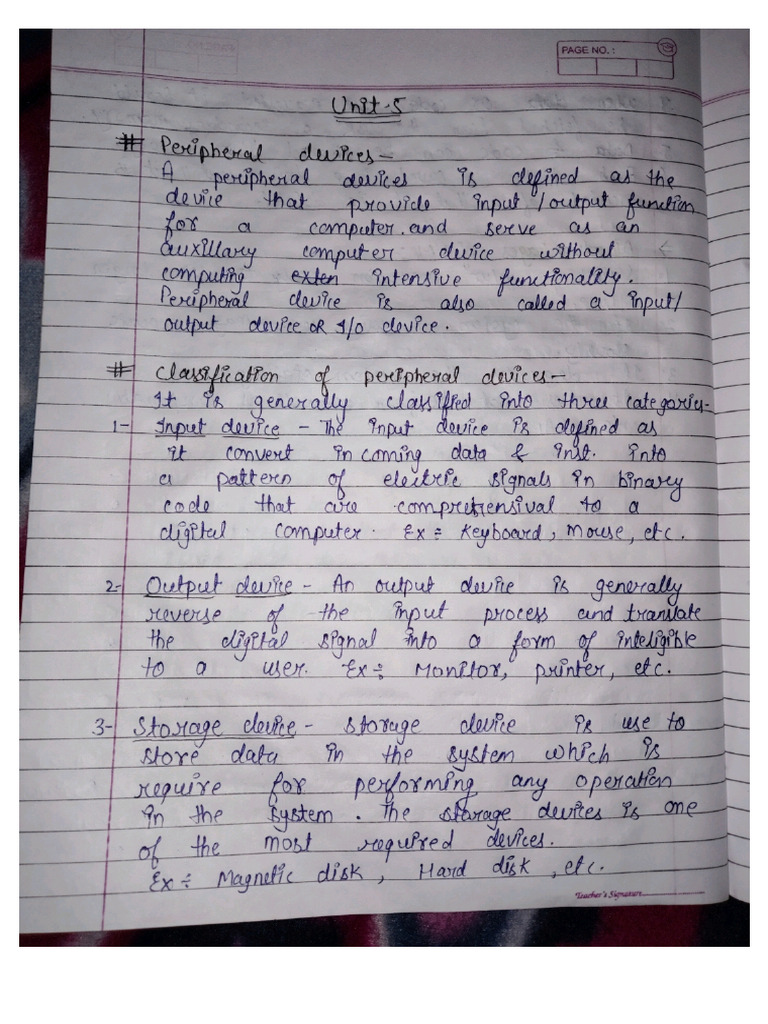 PAGE NO. :
Unit-5
# Peripheral devices -
A peripheral devices is defined as the
device that provide input / output function
for a computer and serve as an
auxillary computer device without
computing exten intensive functionality.
Peripheral device is also called a input/
output device OR I/O device.
# Classification of peripheral devices -
It is generally classified into three categories-
1- Input device - The input device is defined as
it convert in coming data & inst. into
a pattern of electric signals in binary
code that are comprehensival to a
digital computer. Ex ÷ Keyboard, Mouse, etc.
2- Output device - An output device is generally
reverse of the input process and translate
the digital signal into a form of inteligible
to a user. Ex ÷ Monitor, printer, etc.
3- Storage device - storage device is use to
store data in the system which is
require for performing any operation
in the system. The storage devices is one
of the most required devices.
Ex ÷ Magnetic disk, Hard disk, etc.
Teacher's Signature